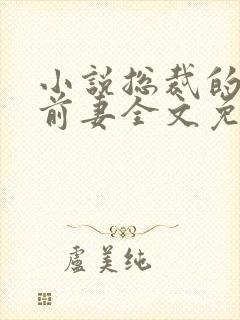 小说总裁的
前妻全文免
盧美纯